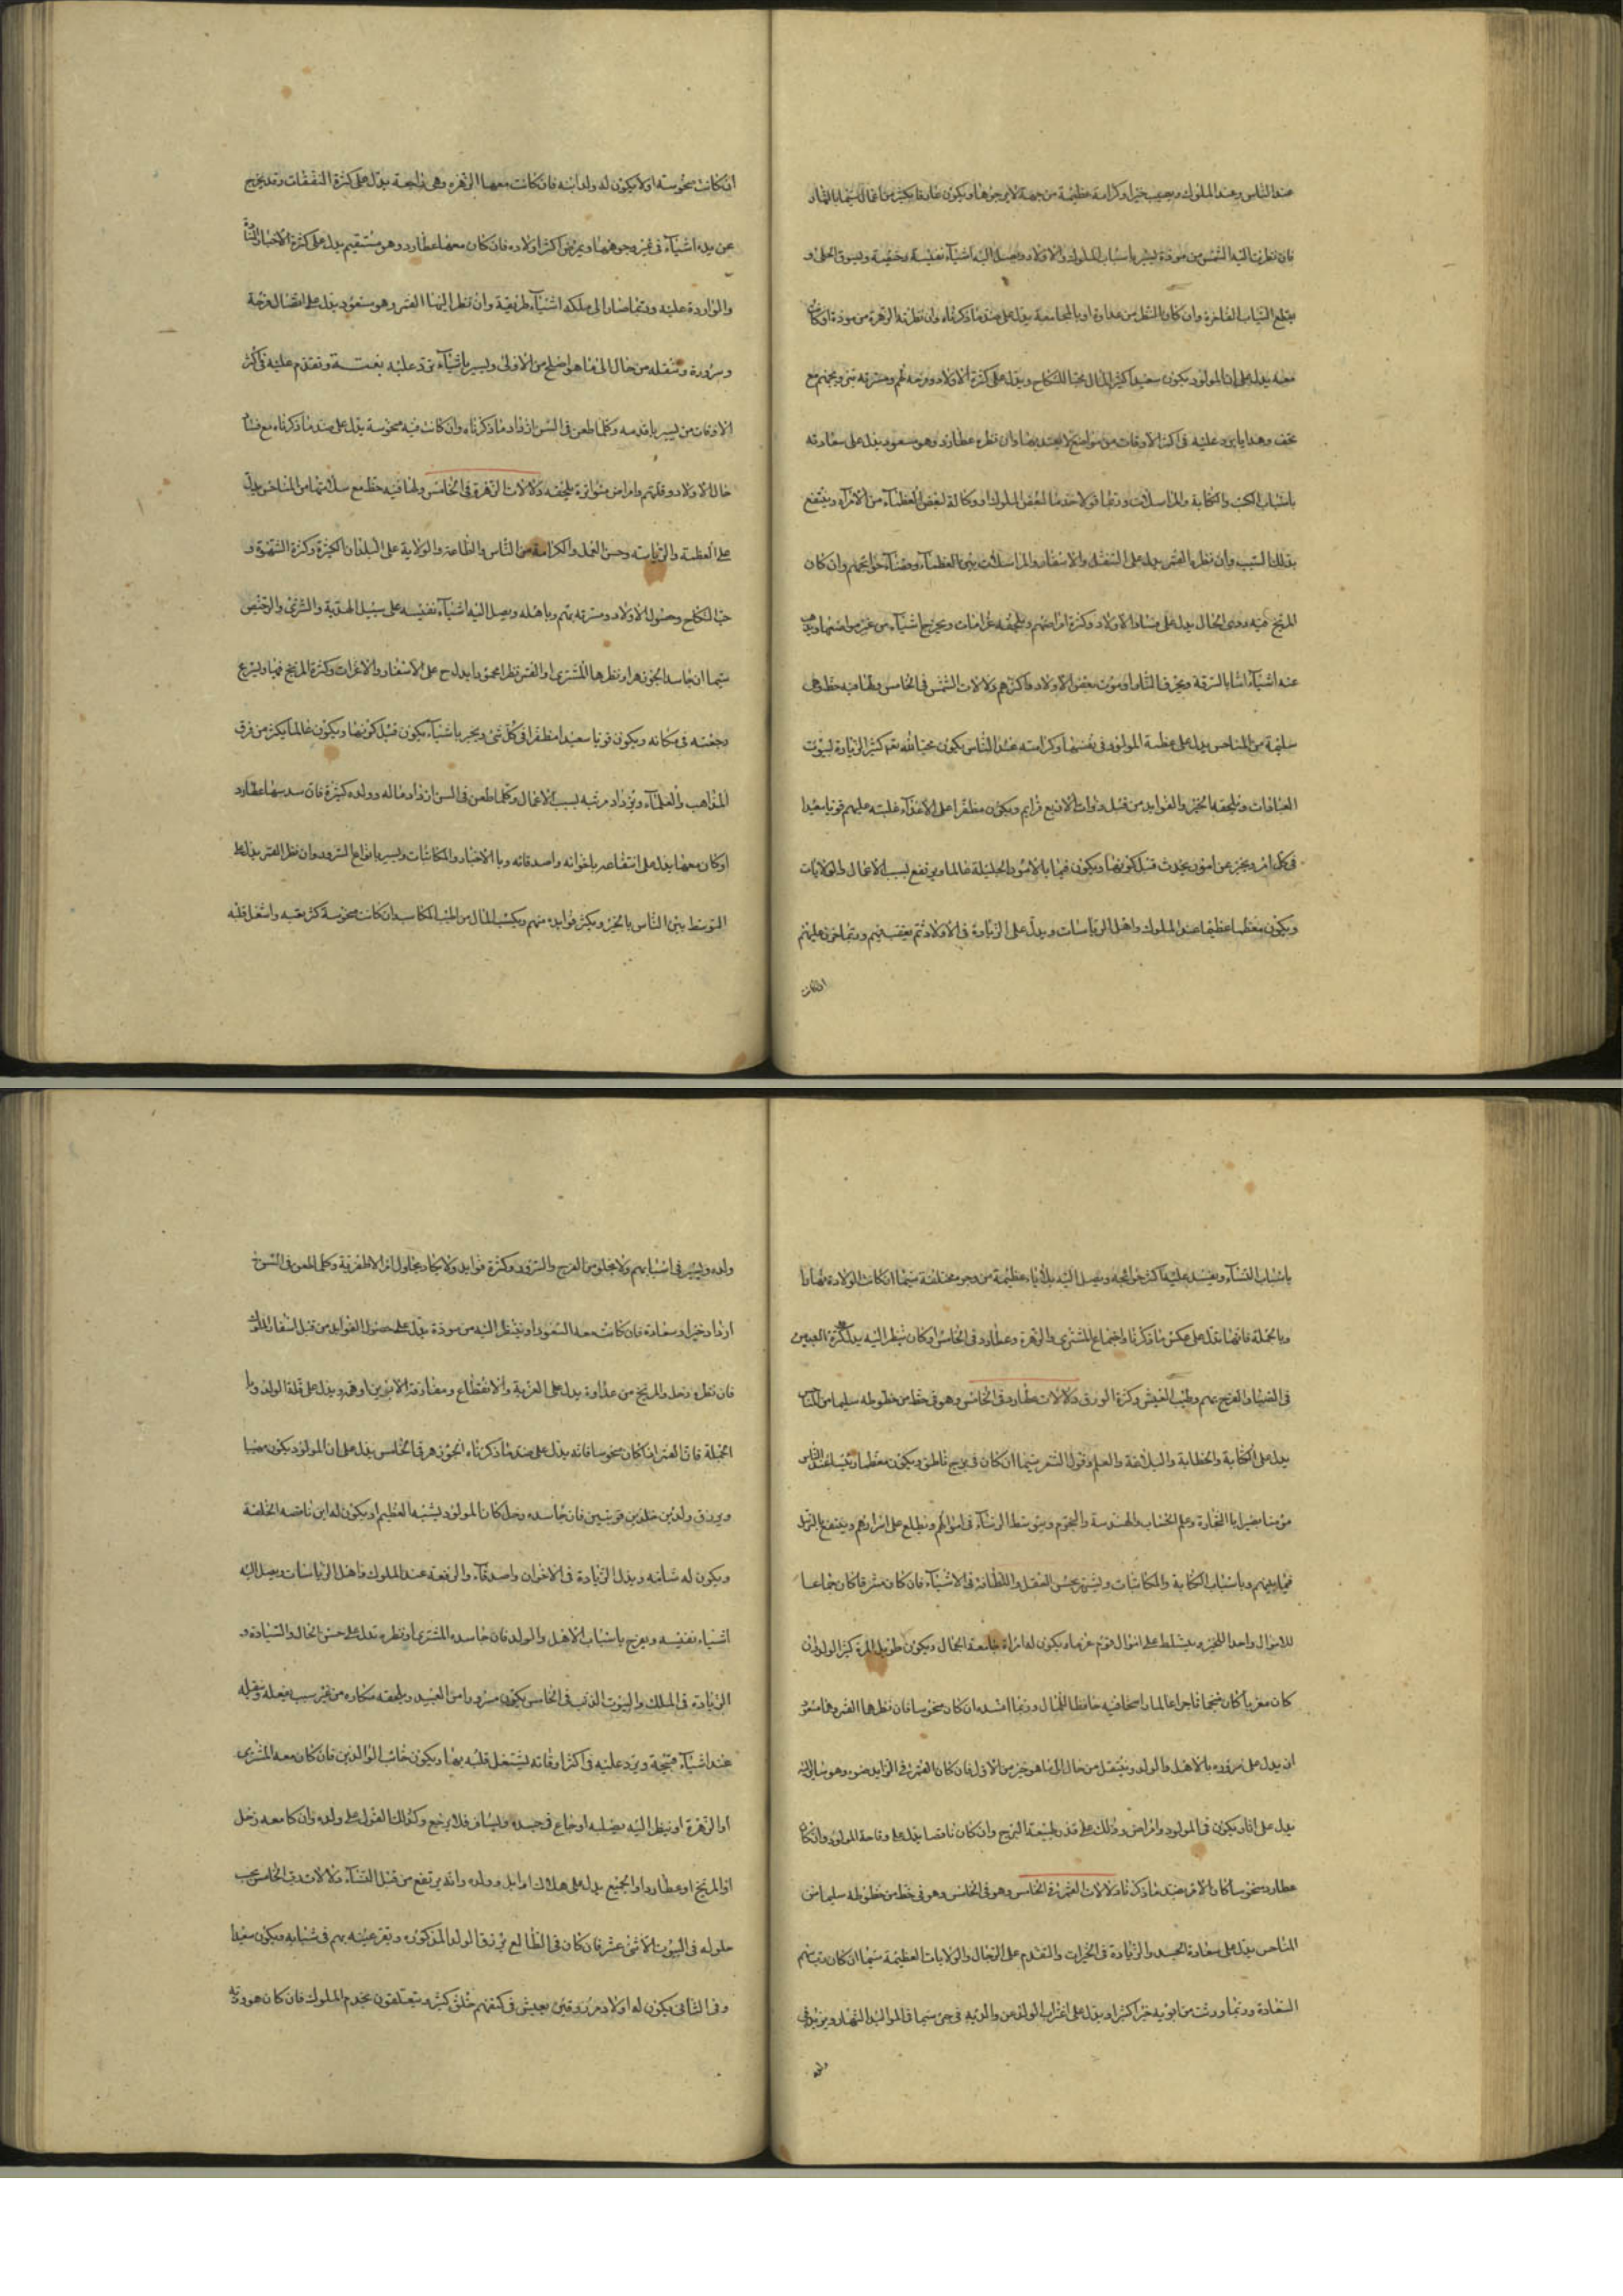 عند الناس وعند الملوك ويصيب خيرا وكرامة عظيمة من جهة لا يرجوها ويكون عارفا بكثير من اعمال سيما بالنهار
فان نظرت اليه الشمس من مودة يسير باسباب الملوك والاولاد ويصل اليه اشياء نفيسة وخفيفة وليسوق الحلى و
يقطع الثياب الفاخرة وان كان النظر من عداوة او بالمجامعة يدل على ضد ما ذكرناه وان نظرته الزهرة من مودة او كانت
معه يدل على ان المولود يكون سعيدا كثير المال محبا للنكاح ويدل على كثرة الاولاد وفرحه بهم ومسرته
تحف وهدايا يرد عليه فى اكثر الاوقات من مواضع لا يعتد بها وان نظره عطارد وهو مسعود يدل على سعادته
باسباب الكتب والكتابة والمراسلات وربما تولا خدمة لبعض الملوك او وكالة لبعض العظماء من الامراء وينتفع
بذلك السبب وان نظره القمر يدل على التنقل والاسفار والمراسلات بين العظماء وقضاء حوائجهم وان كان
المريخ فيه ردى الحال يدل على فساد الاولاد وكثرة امراضهم ويلحقه غرامات ويخرج اشياء من غير مواضعها ويذهب
عنه اشياء اما بالسرقة وبحرق النار او موت بعض الاولاد واكثرهم دلالات الشمس فى الخامس ولها فيه حظ وهى
سليمة من المناحس يدل على عظمة المولود فى نفسها وكرامته عند الناس يكون محبا لله تعا كثير الزيارة لبيوت
العبادات ويلحقه الخير والفوايد من قبل ذوات الاربع قوايم ويكون مظفرا على الاعداء غلبته عليهم قويا سعيدا
فى كل امر ويخبر عن امور يحدث قبل كونها ويكون فهما بالامور الجليلة عالما ويرتفع بسبب الاعمال والولايات
ويكون معظما عظيما عند الملوك واهل الرياسات ويدل على الزيادة فى الاولاد ثم يعقبهم وربما حزن عليهم
ان كانت
ان كانت منحوسة او لا يكون له ولد ابنه فان كانت معها الزهره وهى راجعة يدل على كثرة النفقات وقد يخرج
عن يده اشياء فى غير وجوهها ويمرض اكثر اولاده فان كان معها عطارد وهو مستقيم يدل على كثرة الاخبار السارة
والواردة عليه وربما صار الى ملكه اشياء طريفة وان نظر اليها القمر وهو مسعود يدل على اتصال فرحه
وسروره وتنقله من حال الى ما هو اصلح من الاولى ويسير باشياء ترد عليه بغتة وتقدم عليه فى اكثر
الاوقات من يسير بقدمه وكلما طعن فى السن ازداد ما ذكرناه وان كانت فيه منحوسة يدل على ضد ما ذكرناه مع فساد
حال الاولاد وقلتهم وامراض متواترة يلحقه دلالات الزهرة فى الخامس ولها فيه حظ مع سلامتها من المناحس يدل
على العظمة والرياسة وحسن العمل والكرامة من الناس والطاعة والولاية على البلدان الكثيرة وكثرة الشهوة و
حب النكاح وحصول الاولاد ومسرته بهم وباهله ويصل اليه اشياء نفيسه على سبيل الهدية والشرى والرخيص
سيما ان جاسد الجوزهر او نظرها المشترى او القمر نظرا محمودا يدل ح على الاسفار والاغراب وكثرة المريخ فيها ويسرع
رجعته فى مكانه ويكون قويا سعيدا مظفرا فى كل شئ ويخبر باشياء يكون قبل كونها ويكون عالما بكثر من فرق
المذاهب والعلماء ويزداد مرتبه بسبب الاعمال وكلما طعن فى السن ازداد ماله وولده كثرة فان سدسها عطارد
او كان معها يدل على انتفاعه باخوانه واصدقائه وبالاخبار والمكاتبات ويسير بانواع السرور وان نظر القمر يدل على
التوسط بين الناس بالخير ويكثر فوايده منهم ويكسب المال من اطيب المكاسب ان كانت منحوسة كثر تعبه واشتغل قلبه
باسباب النساء ويفسد عليه اكثر حوائجه ويصل اليه بلايا عظيمة من وجوه مختلفة سيما ان كانت الولادة نهارا
وبالجملة فانها تدل على عكس ما ذكرنا واجتماع المشترى والزهرة وعطارد فى الخامس او كان ينظر اليه يدل على كثرة العبيد
فى الضياء والفرح بهم وطيب العيش وكثرة الورق دلالات عطارد فى الخامس وهو فى حظ من حظوظه سليما من المناحس
يدل على الكتابة والخطابة والبلاغة والعلم وقول الشعر سيما ان كان فى برج ناطق ويكون معظما رئيسا عند الناس
مؤمنا بصيرا بالتجارة وعلم الحساب والهندسة والنجوم ويتوسط الرؤساء فى امورهم ويطلع على اسرارهم وينتفع بالترسل
فيما بينهم وباسباب الكتابة والمكاتبات ويشتهر بحسن العقل واللطافة فى الاشياء فان كان مشرقا كان جماعا
للاموال واجدا للخير ويتسلط على اموال قوم غرباء ويكون له امراة جامعة الجمال ويكون طويل المدة كثير الولد وان
كان مغربا كان منجما تاجرا عالما راسخا فيه حافظا للمال وربما افسده ان كان منحوسا فان نظرهما القمر وهما مسعو
ان يدل على سروره بالاهل والولد وينتقل من حال الى ما هو خير من الاول فان كان القمر فى الزايد ضوءه وهو
يدل على انار يكون فى المولود وامراض وذلك على قدر طبيعة البرج وان كان ناقصا يدل على وقاحة المولود وان كان
عطارد منحوسا كان الامر بضد ما ذكرنا دلالات القمر فى الخامس وهو فى الخامس وهو فى حظ من حظوظه سليما من
المناحس يدل على سعادة الجسد والزيادة فى الخيرات والتقدم على الرجال والولايات العظيمة سيما ان كان
السعادة وربما ورث من ابويه خيرا كثيرا ويدل على اغتراب الولد عن والديه فى سيما فى المواليد النهار ويزيد فى
ولده
ولده ويسير فى اسبابهم ولا يخلو من الفرح والسرور وكثرة فوايد ولا يكاد يحاول امرا الا ظفر به وكلما طعن فى السن
ازداد خيرا وسعادة فان كانت معه السعود او ينظر اليه من مودة يدل على حصول الفوايد من قبل اسفار الملوك
فان نظره زحل والمريخ من عداوة يدل على الغربة والانقطاع ومفارقة الابوين او هى ويدل على قلة الولد وبا
لجملة فان القمر اذا كان منحوسا فانه يدل على ضد ما ذكرناه الجوزهر فى الخامس يدل على ان المولود يكون مضيا
ويرزق ولدين جلدين قويين فان جاسده زحل كان المولود يشبه العظيم ويكون له ابن ناقصه الخلقة
ويكون له شامه ويدل الزيادة فى الاخوان واصدقاء والرفعة عند الملوك واهل الرياسات ويصل اليه
اشياء نفيسه ويفرح باسباب الاهل والولد فان جاسده المشترى او نظره يدل على حسن الحال والسيادة و
الزيادة فى الملك والبيوت الذنب فى الخامس يكون مسرورا من العبيد ويلحقه مكاره من غير سبب فعله وينقله
عنه اشياء قبيحة ويرد عليه فى اكثر اوقاته يشتغل قلبه بها ويكون خائب الوالدين فان كان معه المشترى
او الزهرة او ينظر اليه يصلبه اوجاع فى جسده وليسافر فلا يرجع وكذلك القول على ولده وان كا معه زحل
او المريخ او عطارد او الجميع يدل على هلاك اوابل وولده وانه يرتفع من قبل النساء دلالات رب الخامس بحسب
حلوله فى البيوت الاثنى عشر فان كان فى الطالع يرزق الولد المذكوره وتقر عينه بهم فى شبابه ويكون سعيدا
وفى الثانى يكون له اولاد مرزوقين يعيش فى كنفهم خلق كثير ويتعلقون بخدم الملوك فان كان هو ورب